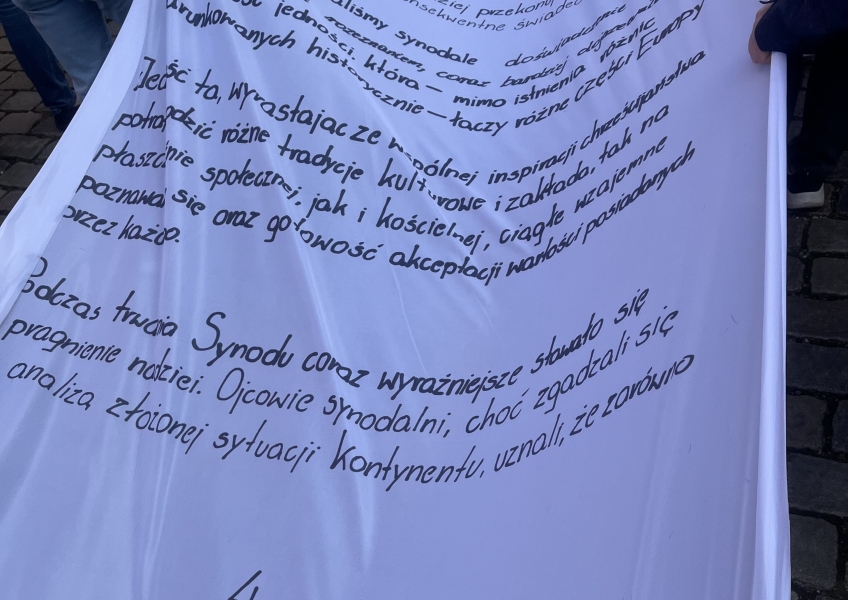 konsekwentne
aliśmy synodale doświadczające
rozeznaniem, coraz bardziej
jedności, która — mimo istnienia różnic
historycznie — łączy różne części Europy
ść ta, wyrastając ze wspólnej inspiracji chrześcijaństwa
różne tradycje kulturowe i zakłada, tak na
społecznej, jak i kościelnej, ciągłe wzajemne
poznawa się oraz gotowość akceptacji wartości posiadanych
przez każd
Podczas trwa Synodu coraz wyraźniejsze stawało się
pragnienie nadziei. Ojcowie synodalni, choć zgadzali się
analizą złożonej sytuacji kontynentu, uznali, że zarówno